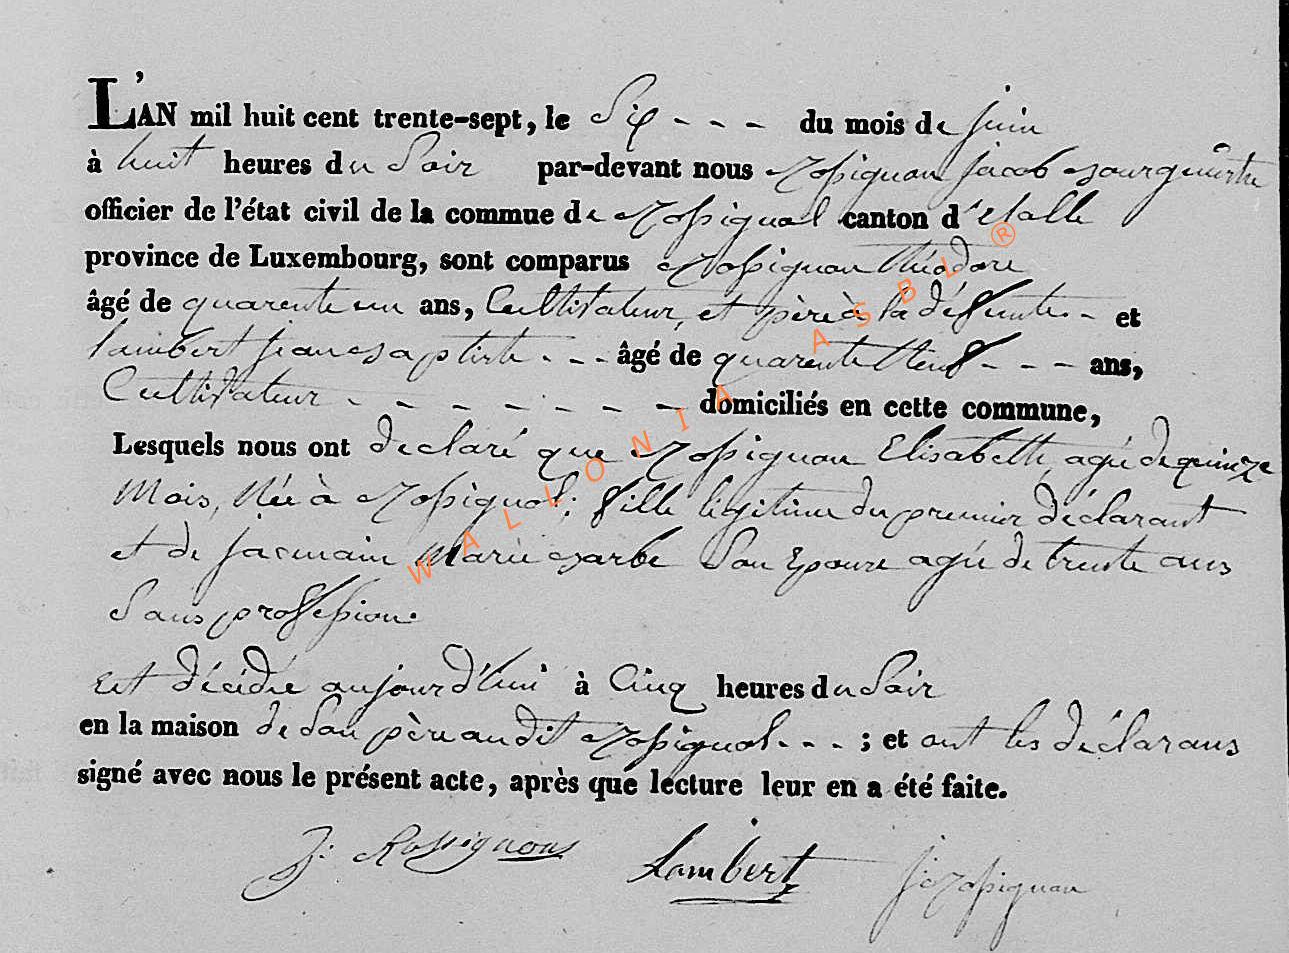 L'AN mil huit cent trente-sept, le Six - - - du mois de juin
à huit heures du Soir par-devant nous Rossignon jacob Bourguestre
officier de l'état civil de la commune de Rossignol canton d'Etalle
province de Luxembourg, sont comparus Rossignon théodore
âgé de quarente un ans, Cultivateur, et père à la défunte - et
Lambert jean Baptiste - - - âgé de quarente Neuf - - - ans,
Cultivateur - - - - - - - - domiciliés en cette commune,
Lesquels nous ont déclaré que Rossignon Elisabeth, agée de quinze
Mois, Née à Rossignol; fille légitime du premier déclarant
et de jacmain Marie Barbe Son Epouse agée de trente ans
Sans profession.
Est décédée aujourd'hui à Cinq heures du Soir
en la maison de Son père audit Rossignol - - - ; et ont les déclarans
signé avec nous le présent acte, après que lecture leur en a été faite.
J: Rossignon Lambert j: Rossignon
WALLONIA ASBL ®